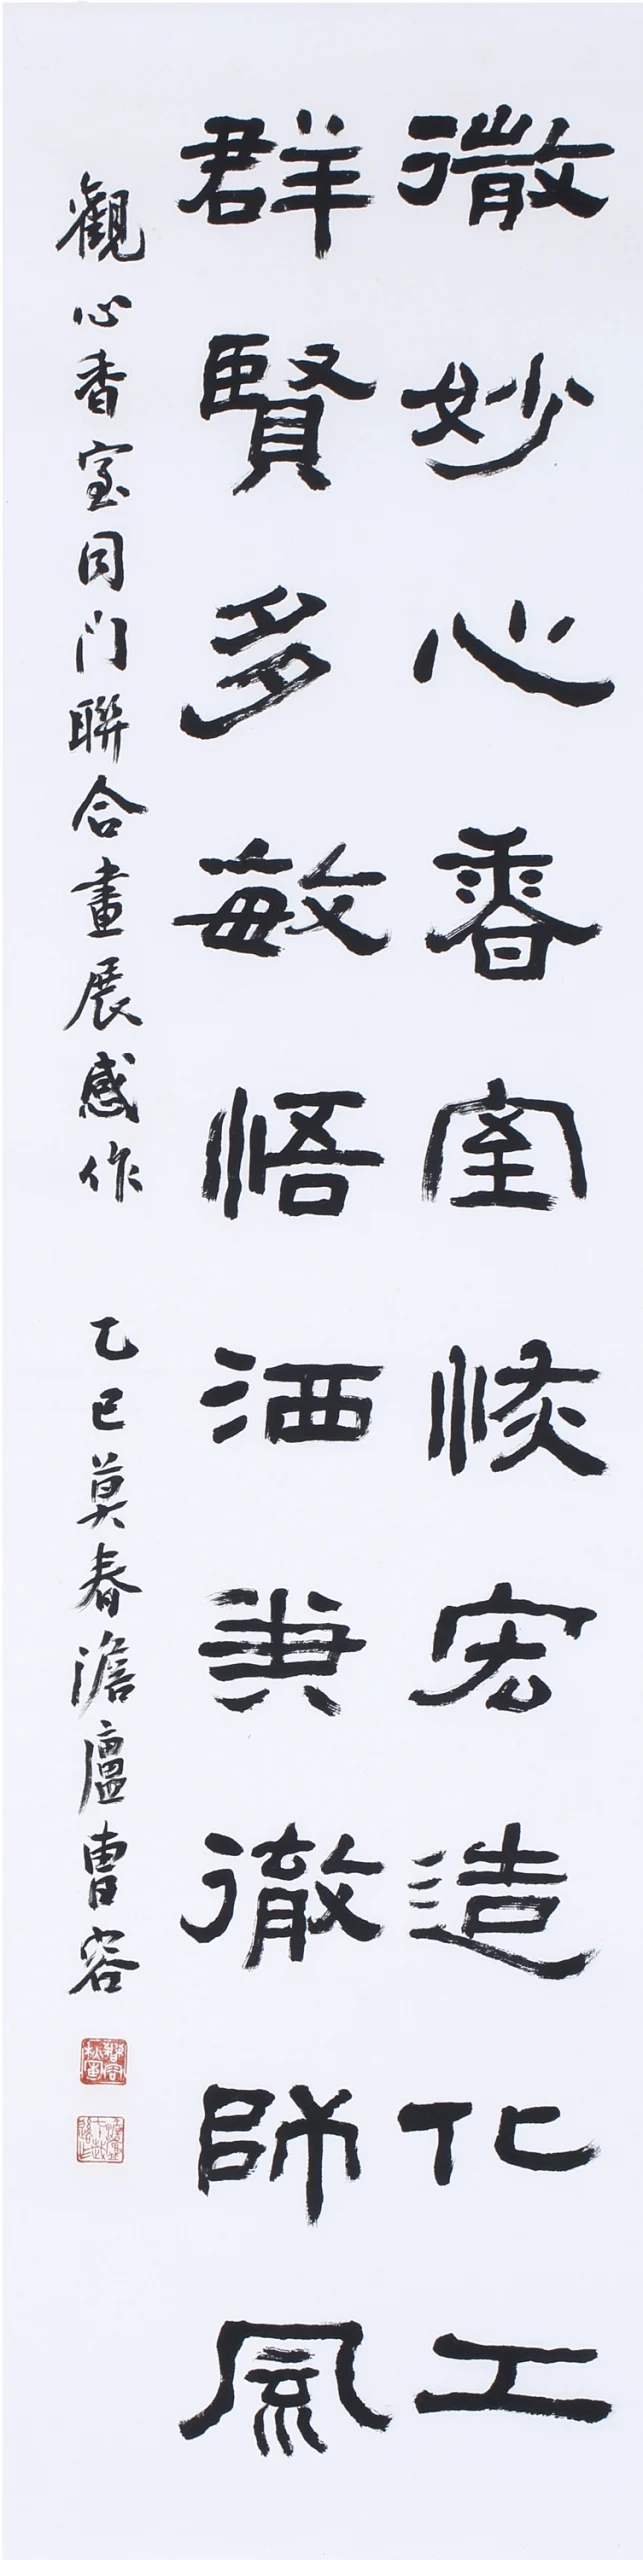 微妙心香室恢宏造化工
群賢多敏悟洒兼徹師風
觀心香室同門聯合畫展感作 乙巳莫春澹廬曹容